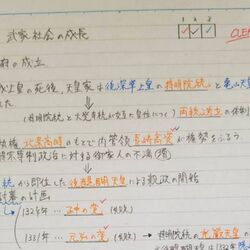 武家社会の成長
1 2 3
CLE
府の成立
上皇の死後、天皇家は後深草上皇の持明院統と亀山天皇
した
(持明院統と大覚寺統が交互に皇位につく) 両統迭立の体制
執権 北条高時のもとで内管領 長崎高資が権勢をふるう
得宗専制政治に対する御家人の不満(増)
統から即位した後醍醐天皇による親政の開始
計画
1324年 … 正中の変 (失敗)
1331年 … 元弘の変 (失敗) → 持明院統の光厳天皇